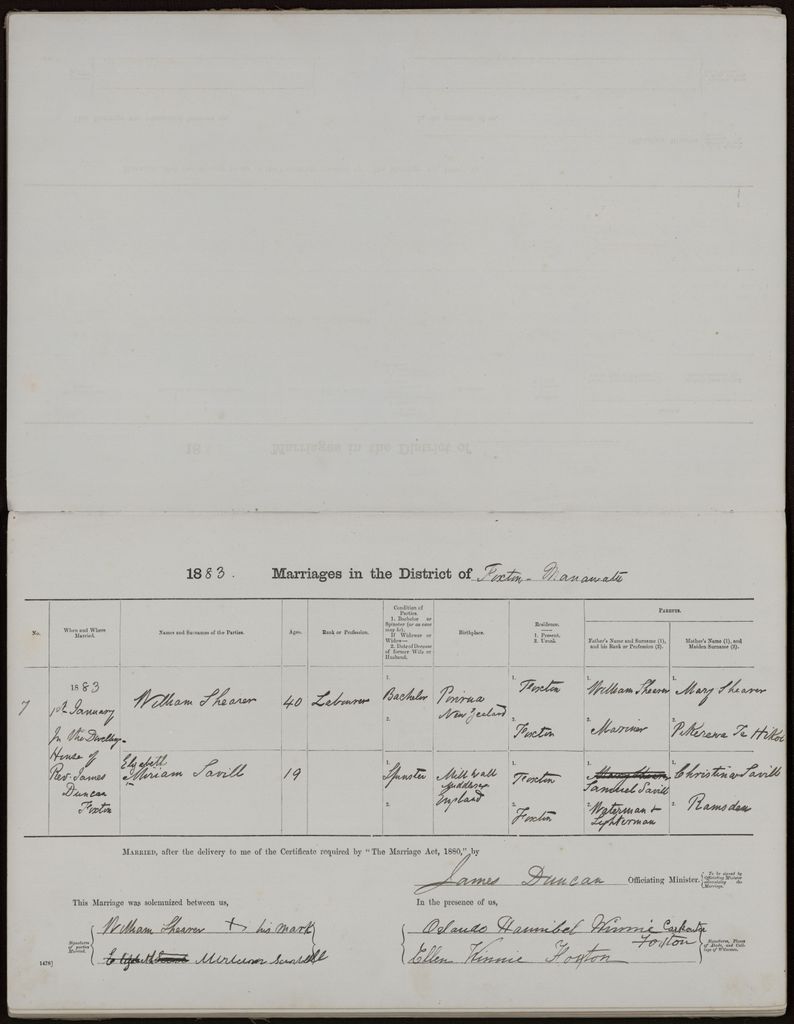 1883. Marriages in the District of Foxton - Manawatu
No.
When and Where Married.
Names and Surnames of the Parties.
Ages.
Rank or Profession.
Condition of Parties.
1. Bachelor or Spinster (or as case may be).
If Widower or Widow—
2. Date of Decease of former Wife or Husband.
Birthplace.
Residence.
1. Present.
2. Usual.
PARENTS.
Father's Name and Surname (1), and his Rank or Profession (2).
Mother's Name (1), and Maiden Surname (2).
7
1883
1st January
In the Dwelling-
House of
Revd. James
Duncan
Foxton
William Shearer
40
Labourer
1. Bachelor
2.
Porirua
New Zealand
1. Foxton
2. Foxton
1. William Shearer
2. Mariner
1. Mary Shearer
2. Te Hiko
Elizabeth
Miriam Savill
19
1. Spinster
2.
Mill Wall
Middlesex
England
1. Foxton
2. Foxton
1.
Samuel Savill
2. Waterman &
Lighterman
1. Christina Savill
2. Ramsden
MARRIED, after the delivery to me of the Certificate required by "The Marriage Act, 1880," by
James Duncan Officiating Minister. { To be signed by Officiating Minister solemnizing the Marriage.
This Marriage was solemnized between us,
Signatures of parties Married.
William Shearer X his mark
Miriam
In the presence of us,
Orlando Hannibal Winnie Carpenter
Foxton
Ellen Winnie Foxton
Signatures, Places of Abode, and Callings of Witnesses.
1476]